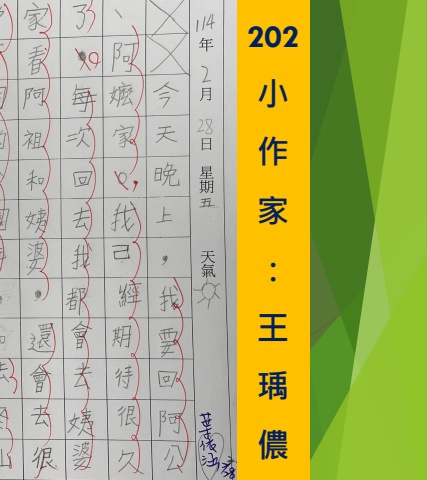 202小作家：王瑀儂
114年2月28日 星期五 天氣
今天晚上，我要回阿公
、阿嬤家。，我己經期待很久
了。每次回去我都會去姨婆
家看阿祖和姨婆，還會去很